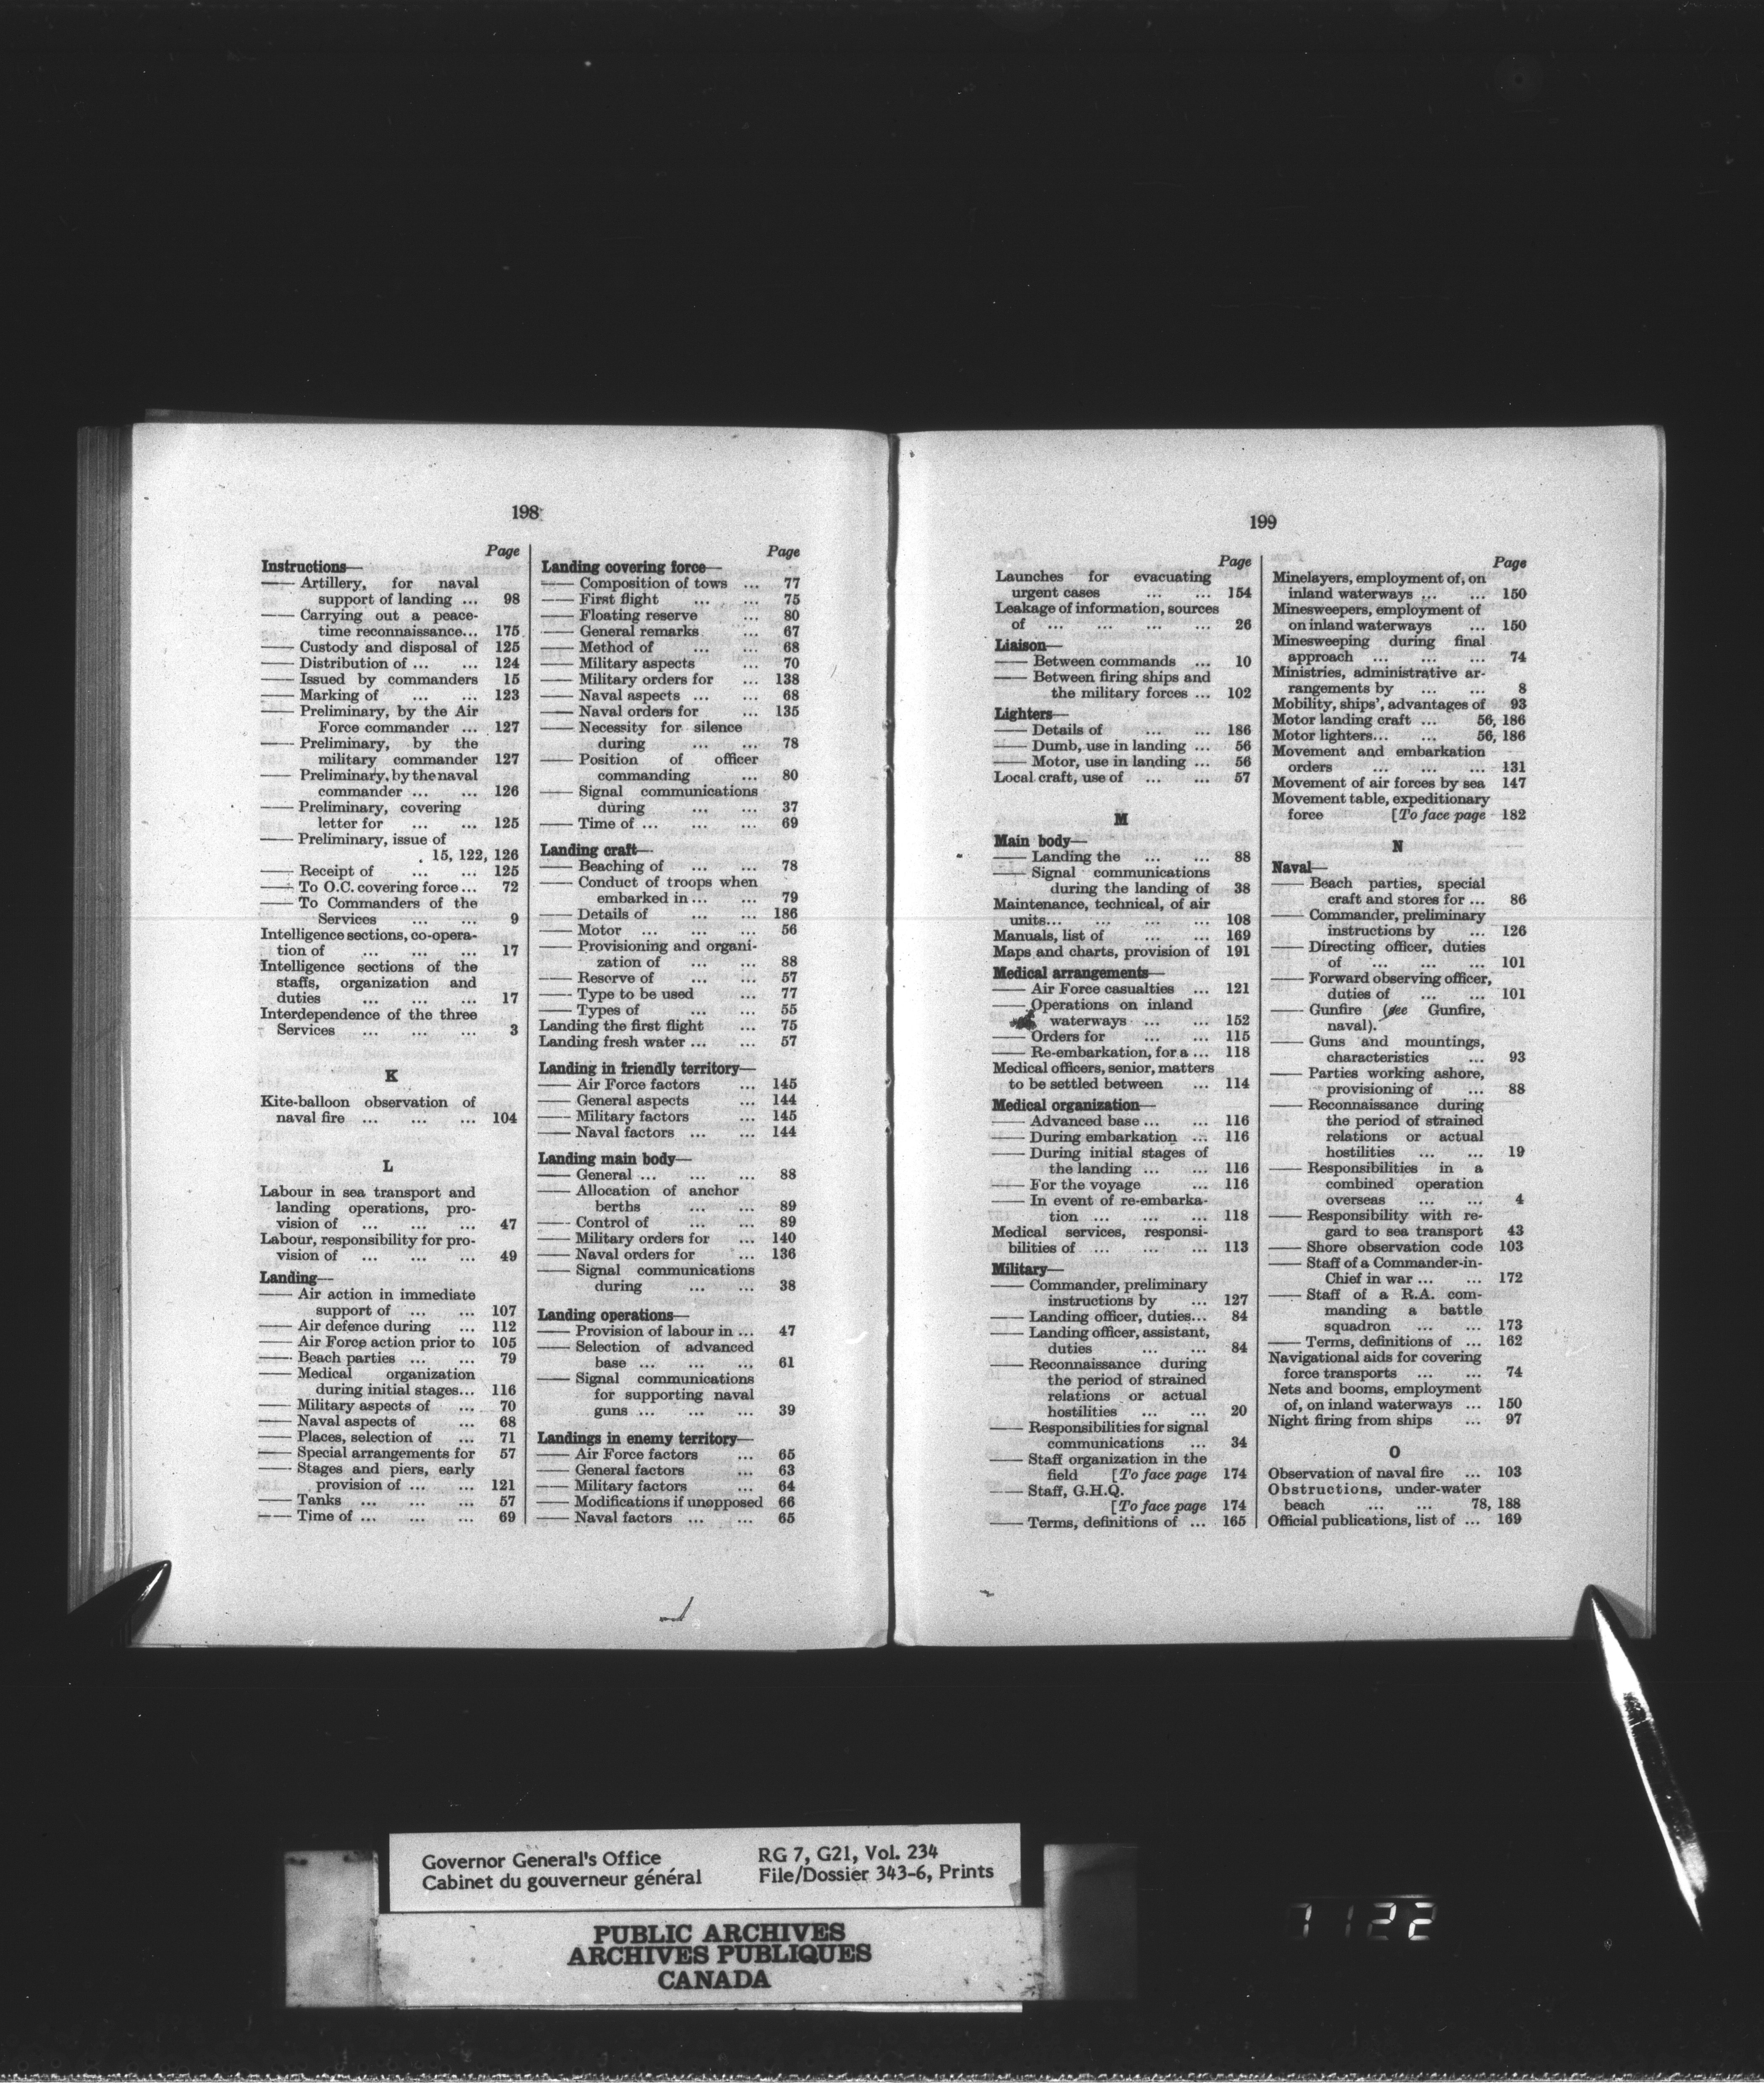 198
Page
Instructions—
—— Artillery, for naval
support of landing ... 98
—— Carrying out a peace-
time reconnaissance... 175
—— Custody and disposal of 125
—— Distribution of ... ... 124
—— Issued by commanders 15
—— Marking of ... ... 123
—— Preliminary, by the Air
Force commander ... 127
—— Preliminary, by the
military commander 127
—— Preliminary, by the naval
commander ... ... 126
—— Preliminary, covering
letter for ... ... 125
—— Preliminary, issue of
15, 122, 126
—— Receipt of ... ... 125
—— To O.C. covering force... 72
—— To Commanders of the
Services ... ... 9
Intelligence sections, co-opera-
tion of ... ... ... 17
Intelligence sections of the
staffs, organization and
duties ... ... ... 17
Interdependence of the three
Services ... ... ... 3
K
Kite-balloon observation of
naval fire ... ... ... 104
L
Labour in sea transport and
landing operations, pro-
vision of ... ... ... 47
Labour, responsibility for pro-
vision of ... ... ... 49
Landing—
—— Air action in immediate
support of ... ... 107
—— Air defence during ... 112
—— Air Force action prior to 105
—— Beach parties ... ... 79
—— Medical organization
during initial stages... 116
—— Military aspects of ... 70
—— Naval aspects of ... 68
—— Places, selection of ... 71
—— Special arrangements for 57
—— Stages and piers, early
provision of ... ... 121
—— Tanks ... ... ... 57
—— Time of ... ... ... 69
Page
Landing covering force—
—— Composition of tows ... 77
—— First flight ... ... 75
—— Floating reserve ... 80
—— General remarks ... 67
—— Method of ... ... 68
—— Military aspects ... 70
—— Military orders for ... 138
—— Naval aspects ... ... 68
—— Naval orders for ... 135
—— Necessity for silence
during ... ... 78
—— Position of officer
commanding ... 80
—— Signal communications
during ... ... 37
—— Time of ... ... ... 69
Landing craft—
—— Beaching of ... ... 78
—— Conduct of troops when
embarked in ... ... 79
—— Details of ... ... 186
—— Motor ... ... ... 56
—— Provisioning and organi-
zation of ... ... 88
—— Reserve of ... ... 57
—— Type to be used ... 77
—— Types of ... ... 55
Landing the first flight ... 75
Landing fresh water ... ... 57
Landing in friendly territory—
—— Air Force factors ... 145
—— General aspects ... 144
—— Military factors ... 145
—— Naval factors ... ... 144
Landing main body—
—— General ... ... ... 88
—— Allocation of anchor
berths ... ... 89
—— Control of ... ... 89
—— Military orders for ... 140
—— Naval orders for ... 136
—— Signal communications
during ... ... 38
Landing operations—
—— Provision of labour in ... 47
—— Selection of advanced
base ... ... ... 61
—— Signal communications
for supporting naval
guns ... ... ... 39
Landings in enemy territory—
—— Air Force factors ... 65
—— General factors ... 63
—— Military factors ... 64
—— Modifications if unopposed 66
—— Naval factors ... ... 65
199
Page
Launches for evacuating
urgent cases ... ... 154
Leakage of information, sources
of ... ... ... ... 26
Liaison—
—— Between commands ... 10
—— Between firing ships and
the military forces ... 102
Lighters—
—— Details of ... ... 186
—— Dumb, use in landing ... 56
—— Motor, use in landing ... 56
Local craft, use of ... ... 57
M
Main body—
—— Landing the ... ... 88
—— Signal communications
during the landing of 38
Maintenance, technical, of air
units... ... ... ... 108
Manuals, list of ... ... 169
Maps and charts, provision of 191
Medical arrangements—
—— Air Force casualties ... 121
—— Operations on inland
waterways ... ... 152
—— Orders for ... ... 115
—— Re-embarkation, for a ... 118
Medical officers, senior, matters
to be settled between ... 114
Medical organization—
—— Advanced base ... ... 116
—— During embarkation ... 116
—— During initial stages of
the landing ... ... 116
—— For the voyage ... 116
—— In event of re-embarka-
tion ... ... ... 118
Medical services, responsi-
bilities of ... ... ... 113
Military—
—— Commander, preliminary
instructions by ... 127
—— Landing officer, duties... 84
—— Landing officer, assistant,
duties ... ... 84
—— Reconnaissance during
the period of strained
relations or actual
hostilities ... ... 20
—— Responsibilities for signal
communications ... 34
—— Staff organization in the
field [To face page 174
—— Staff, G.H.Q.
[To face page 174
—— Terms, definitions of ... 165
Page
Minelayers, employment of, on
inland waterways ... ... 150
Minesweepers, employment of
on inland waterways ... 150
Minesweeping during final
approach ... ... ... 74
Ministries, administrative ar-
rangements by ... ... 8
Mobility, ships', advantages of 93
Motor landing craft ... 56, 186
Motor lighters... ... 56, 186
Movement and embarkation
orders ... ... ... 131
Movement of air forces by sea 147
Movement table, expeditionary
force [To face page 182
N
Naval—
—— Beach parties, special
craft and stores for ... 86
—— Commander, preliminary
instructions by ... 126
—— Directing officer, duties
of ... ... ... 101
—— Forward observing officer,
duties of ... ... 101
—— Gunfire (see Gunfire,
naval).
—— Guns and mountings,
characteristics ... 93
—— Parties working ashore,
provisioning of ... 88
—— Reconnaissance during
the period of strained
relations or actual
hostilities ... ... 19
—— Responsibilities in a
combined operation
overseas ... ... 4
—— Responsibility with re-
gard to sea transport 43
—— Shore observation code 103
—— Staff of a Commander-in-
Chief in war ... ... 172
—— Staff of a R.A. com-
manding a battle
squadron ... ... 173
—— Terms, definitions of ... 162
Navigational aids for covering
force transports ... ... 74
Nets and booms, employment
of, on inland waterways ... 150
Night firing from ships ... 97
O
Observation of naval fire ... 103
Obstructions, under-water
beach ... ... 78, 188
Official publications, list of ... 169
Governor General's Office RG 7, G21, Vol. 234
Cabinet du gouverneur général File/Dossier 343-6, Prints
PUBLIC ARCHIVES
ARCHIVES PUBLIQUES
CANADA
1122